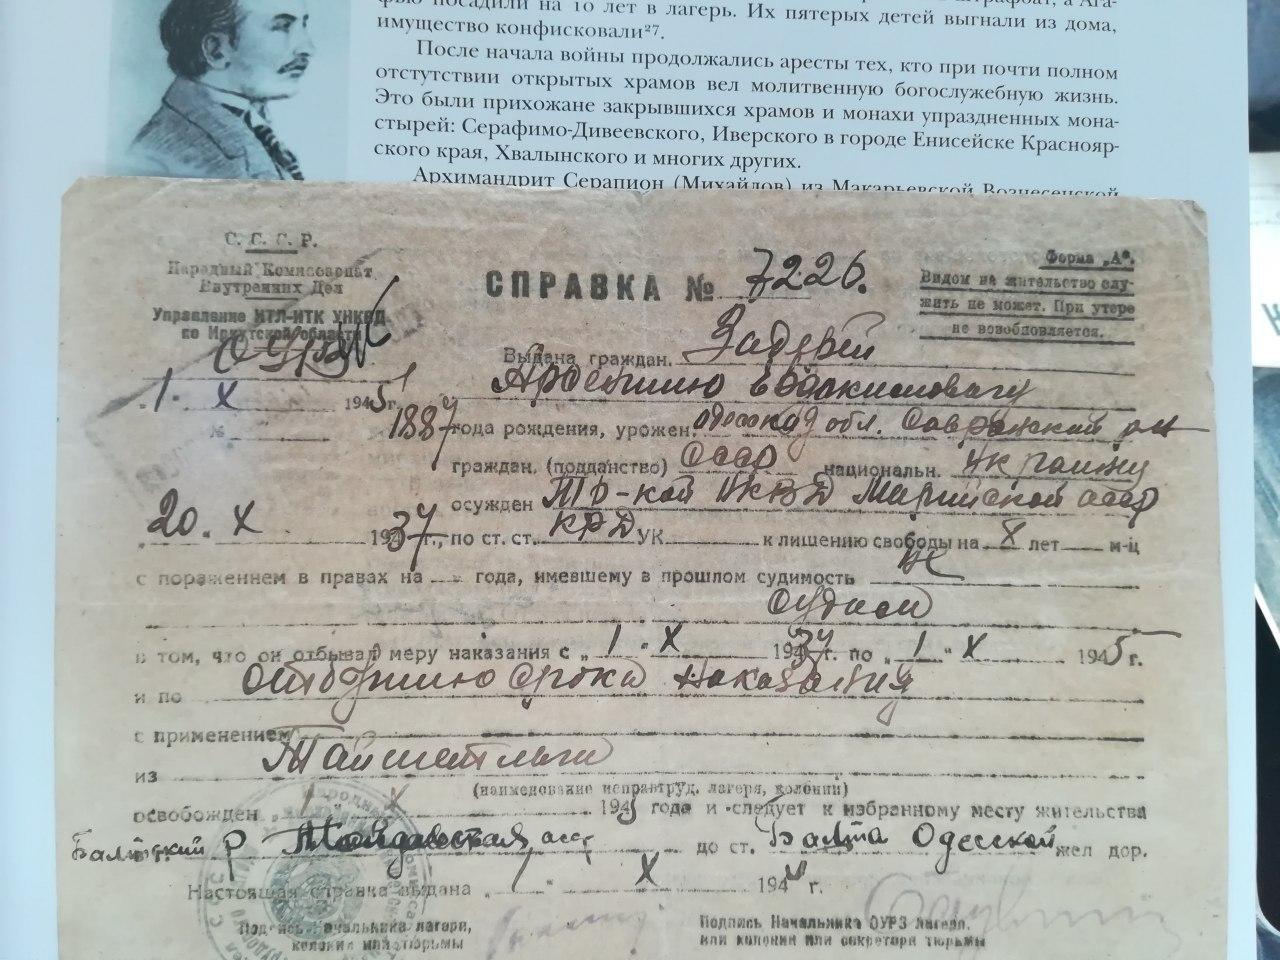 фью посадили на 10 лет в лагерь. Их пятерых детей выгнали из дома,
имущество конфисковали²⁷.
После начала войны продолжались аресты тех, кто при почти полном
отстутствии открытых храмов вел молитвенную богослужебную жизнь.
Это были прихожане закрывшихся храмов и монахи упраздненных мона-
стырей: Серафимо-Дивеевского, Иверского в городе Енисейске Краснояр-
ского края, Хвалынского и многих других.
Архимандрит Серапион (Михайлов) из Макарьевской Вознесенской
С. С. С. Р.
Народный Комиссариат
Внутренних Дел
Управление ИТЛ-ИТК УНКВД
по Иркутской области
„1" X 1945 г.
№
СПРАВКА № 7226.
Форма „А".
Видом на жительство слу-
жить не может. При утере
не возобновляется.
Выдана граждан. Задерей
1887 года рождения, урожен. одесской обл. Савранский
граждан. (подданство) СССР национальн. Украинец
осужден НКВД Марийской АССР
„20" X 1937 г., по ст. ст. КРД УК к лишению свободы на 8 лет м-ц
с поражением в правах на года, имевшему в прошлом судимость не
судим
в том, что он отбывал меру наказания с „1" X 1937 г. по „1" X 1945 г.
и по отбытию срока наказания
с применением
из Тайшетлага
(наименование исправтруд. лагеря, колонии)
освобожден „1" X 1945 года и следует к избранному месту жительства
Балтский р Молдавская асср до ст. Балта Одесской жел дор.
Настоящая справка выдана „1" X 194 г.
Подпись Начальника лагеря,
колонии или тюрьмы
Подпись Начальника ОУРЗ лагеря,
или колонии или секретаря тюрьмы